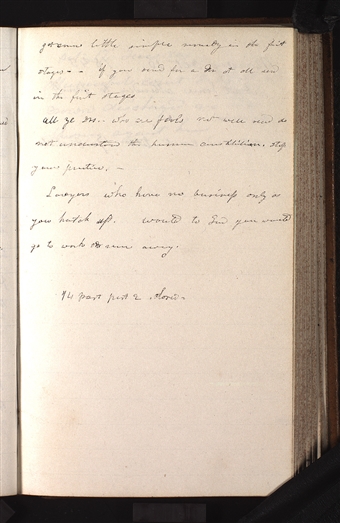 some little simple remedy in the first
stages - - if you send for a Dr at all send
in the first stages
all ye Drs.. who are fools
not understand the human constitution. stop
your practice. -
Lawyers who have no business only as
you hatch up. would to God you would
go to work or run away.